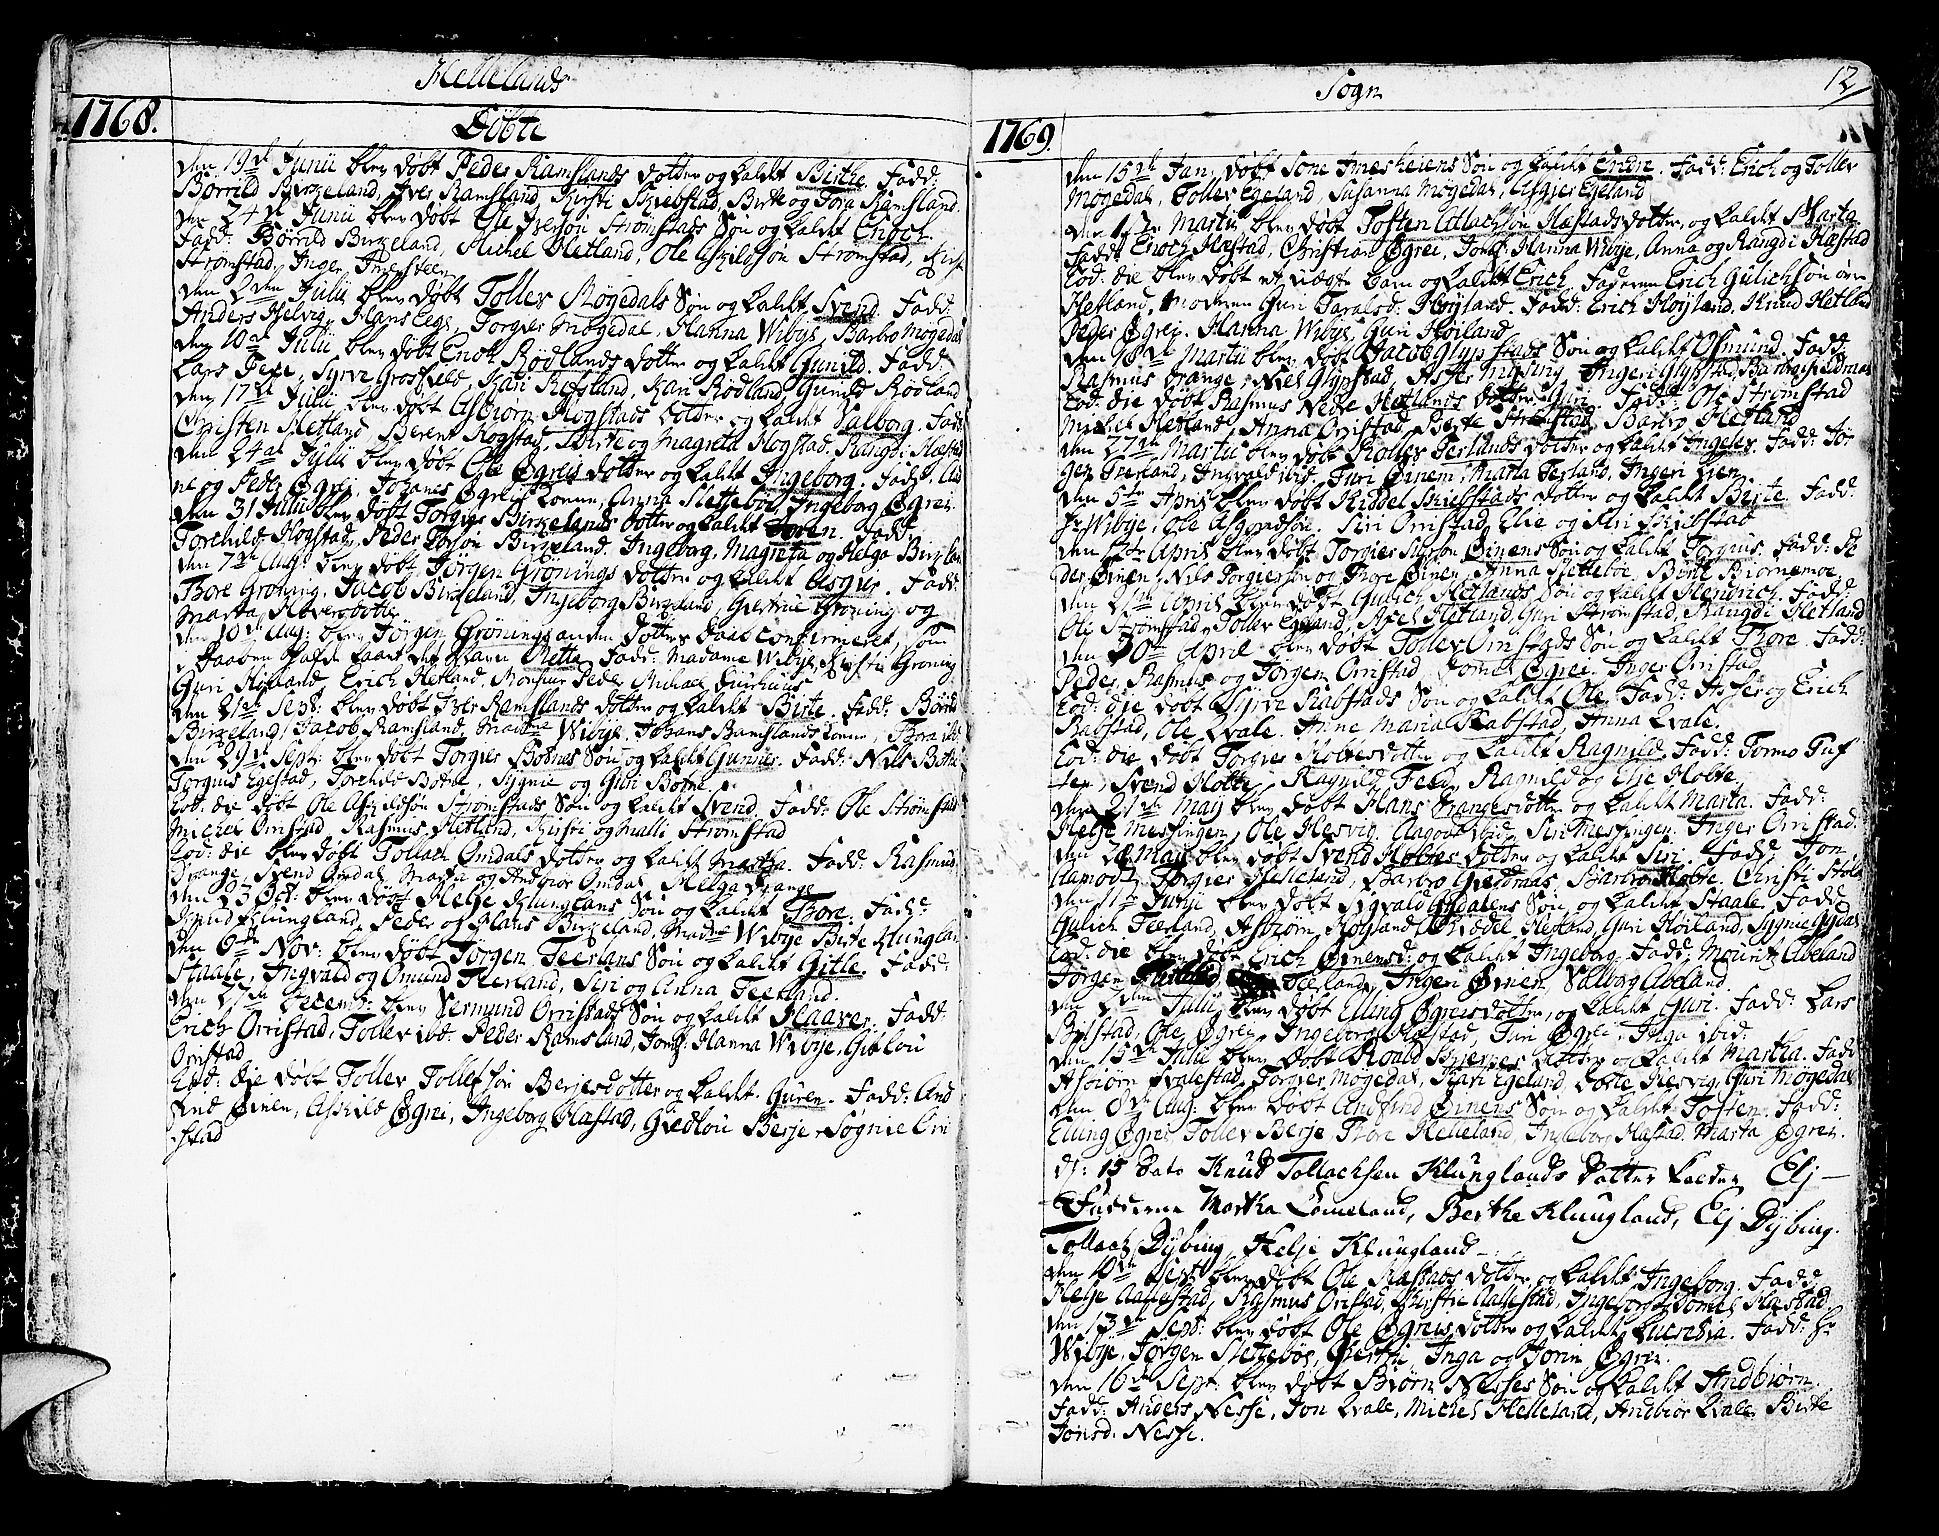 Hellelands
1768.
Döbte
den 19de Junii blev döbt Peder Ramslands dotter og kaldt Birthe. Fadd:
Börrild Birkeland, Iver Ramsland, Kirsti Skiebstad, Birte og Tora Ramsland.
den 24de Junii blev döbt Ole Iversön Strömstads Sön og kaldt Enoch
Fadd: Börrild Birkeland, Michel Hetland, Ole Eskildsön Strömstad, Kirsti
Strömstad, Inger
den 2den Julii blev döbt Tollev Mögedals Sön og kaldt Svend. Fadd:
Anders Helvig, Hans Eege, Torgier Mögedal, Hanna Wibye, Barbro Mögedal
den 10de Julii blev döbt Enok Rödlands dotter og kaldt Gunild. Fadd:
Lars Feye, Syrve Grosfield, Kari Refsland, Kari Rödland, Gunild Rödland
den 17de Julii blev döbt Asbiorn Hogstads dotter og kaldt Valborg. Fadd:
Christen Hetland, Berent Hogstad, Birte og Magreta Hogstad, Rangdi Hæstad
den 24de Julii blev döbt Ole Ögreis dotter og kaldt Ingeborg. Fadd: And
ne og Peder Ögrei, Johanes Ögreis konne, Anna Sletteböe, Ingeborg Ögrei.
den 31 Julii blev döbt Torgier Birkelands dotter og kaldt Toren. Fadd:
Torchild Hogstad, Peder Torsön Birkeland, Ingeborg, Magreta og Helga Birkeland
den 7de Aug: blev döbt Jörgen Grönings dotter og kaldt Asgier. Fadd:
Tore Gröning, Jacob Birkeland, Ingeborg Birkeland, Giertrue Gröning og
Marta Heverobotten
den 10de Aug: blev Jörgen Grönings anden dotters Daab confirmeret, som
i Daaben hafde faaet det Navn Mette. Fadd: Madame Wibye, Kirstie Gröning
Guri Höiland, Erich Hetland, Monsieur Peder Michael
den 21de Sept: blev döbt Iver Ramslands dotter og kaldt Birte. Fadd: Börild
Birkeland, Jacob Ramsland, Madme Wibye, Johans Ramslands konne, Tora ibid:
den 29de Sept: blev döbt Torgier Botnes Sön og kaldt Gunner. Fadd: Nils Botne
Torgius Egestad, Torchild Botne, Sygnie og Guri Botne.
Eod: die döbt Ole Askildsön Strömstads Sön og kaldt Svend. Fadd: Ole Strömstad
Michel Orristad, Rasmus Hetland, Kirsti og Malli Strömstad
Eod: die blev döbt Tollach Omdals dotter og kaldt Martha. Fadd: Rasmus
Drange, Svend Omdal, Marta og Andbior Omdal, Helga Drange
den 23 Oct: blev döbt Helje Klunglans Sön og kaldt Tore. Fadd:
Knud Klungland, Peder og Hans Birkeland, Madme Wibye, Birte Klungland
den 6te Nov: blev döbt Jörgen Teerlans Sön og kaldt Gitle. Fadd:
Staale, Ingvald og Omund Teerland, Siri og Anna Teerland.
den 27de Decemb: blev Vermund Orristads Sön og kaldt Haaver. Fadd:
Erich Orristad, Tollev ibd: Peder Ramsland, Jomf: Hanna Wibye, Gidlou
Orristad
Eod: die döbt Tollev Tollefsön Berjes dotter og kaldt Guren. Fadd: And
find Öinen, Askild Ögrei, Ingeborg Hæstad, Giedlou Berje, Sögnie Orri
stad
Sogn
12
1769
den 15de Jan: döbt Sone Imeskeiens Sön og kaldt Endre. Fadd: Erich og Tollev
Mögedal, Tollev Egeland, Susanna Mögedal, Asgier Egeland
den 12te Martii blev döbt Tosten Atlachsön Hæstads dotter, og kaldt Marta
Fadd: Enoch Hæstad, Christian Ögrei, Jomf: Hanna Wibye, Anna og Rangdi Hæstad
Eod: die blev döbt et uægte barn og kaldt Erich. Faderen Erich Gulichsön övre
Hetland, Moderen Guri Taralsd: Höyland. Fadd: Erich Höyland, Knud Hetland
Peder Ögrei, Hanna Wibye, Guri Höiland
den 18de Martii blev döbt Jacob Glypstads Sön og kaldt Osmund. Fadd:
Rasmus Drange, Niels Glypstad, Ingeri Glypstad, Barbro
Eod: die döbt Rasmus Nedre Hetlands dotter Guri. Fadd: Ole Strömstad
Michel Hetland, Anna Orristad, Berte Strömstad, Barbro Hetland
den 27de Martii blev döbt Rollev Terlands dotter og kaldt Ingelev. Fadd: Jör
gen Teerland, Ingvald ibid: Turi Öinen, Marta Terland, Ingeri Lien
den 5te April blev döbt Kiddel Skiebstads dotter og kaldt Berte. Fadd:
Hr Wibye, Ole Asgrudsön, Siri Orristad, Elie og Siri Skiebstad
den 12te April blev döbt Torgier Öinens Sön og kaldt Torgius. Fadd: Pe
der Öinen, Nils Torgiersön og Thore Öinen, Anna Slettebøe, Birte Biörnemoe
den 21de April blev döbt Gulich Hetlands Sön og kaldt Hendrich. Fadd:
Ole Strömstad, Tollev Egeland, Axel Hetland, Guri Strömstad, Rangdi Hetland
den 30te April blev döbt Tollev Orristads Sön og kaldt Tore. Fadd:
Peder, Rasmus og Jörgen Orristad, Ögrei, Inger Orristad
Eod: die döbt Syrve Rabstads Sön og kaldt Ole. Fadd: Asser og Erich
Rabstad, Ole Qvale, Anne Maria Rabstad, Anna Qvale.
Eod: die döbt Torgier Holtes dotter og kaldt Ragnild. Fadd: Tormo Tuf
ten, Svend Holte, Ragnild Feed, Ragnild og Else Holte
den 21de Maij blev döbt Hans Dranges dotter og kaldt Marta. Fadd:
Helje Messingen, Ole Hesvig, Aagaat ibid, Siri Messingen, Inger Orristad.
den 28 Maij blev döbt Svend Holtes dotter og kaldt Siri. Fadd: Jon
Hamodt, Torgier Helleland, Barbro Gieddraas, Barbro Holte, Christi Holte
den 11te Junii blev döbt Sygvald Gydalens Sön og kaldt Staale. Fadd:
Gulich Teerland, Asbiörn Höyland, Hetland, Guri Höiland, Sygnie Gydal
Eod: die blev döbt Erich Öinensd: og kaldt Ingeborg. Fadd: Mouritz Abeland
Jörgen Teeland, Ingeri Öinen, Valborg Abeland.
den 2den Julii blev döbt Elling Ögreis dotter, og kaldt Guri. Fadd: Lars
Bilstad, Ole Ögrei, Ingeborg Hæstad, Turi Ögrei, Inga ibid:
den 15de Julii blev döbt Roald Bierjes dotter og kaldt Martha. Fadd
Asbiörn Svalestad, Torgier Mögedal, Kari Egeland, Dorte Hesvig, Guri Mögedal
den 8de Aug: blev döbt Andfind Öinens Sön og kaldt Tosten. Fadd:
Elling Ögrei, Tollev Berje, Tore Helleland, Ingeborg Hæstad, Marta Ögrei.
d: 15 Dato Knud Tollachsen Klunglands Datter kaldes Elj-
Fadderne Martha Lomeland, Berthe Klungland, Elj Dybing.
Tollach Dybing, Helje Klungland-
den 10de Sept blev döbt Ole Hæstads dotter, og kaldt Ingeborg. Fadd:
Helje Aallestad, Rasmus Oristad, Kirstie Aallestad, Ingeborg Hæstad
den 13de Sept: blev döbt Ole Ögreis dotter og kaldt Lucrehia. Fadd: Hr
Wibye, Jörgen Slettebøe, Giertrue, Inga og Torin Ögrei.
den 16de Sept: blev döbt Biörn Nesses Sön og kaldt Andbiörn.
Fadd: Anders Nesse, Jon Qvale, Michel Helleland, Andbiör Qvale, Birte
Jonsd: Nesse.